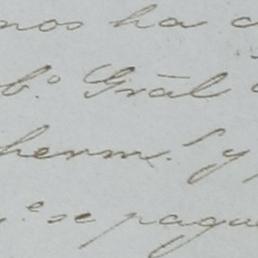 nos ha
b.º Grāl
herm.ᶠ y
e se pague